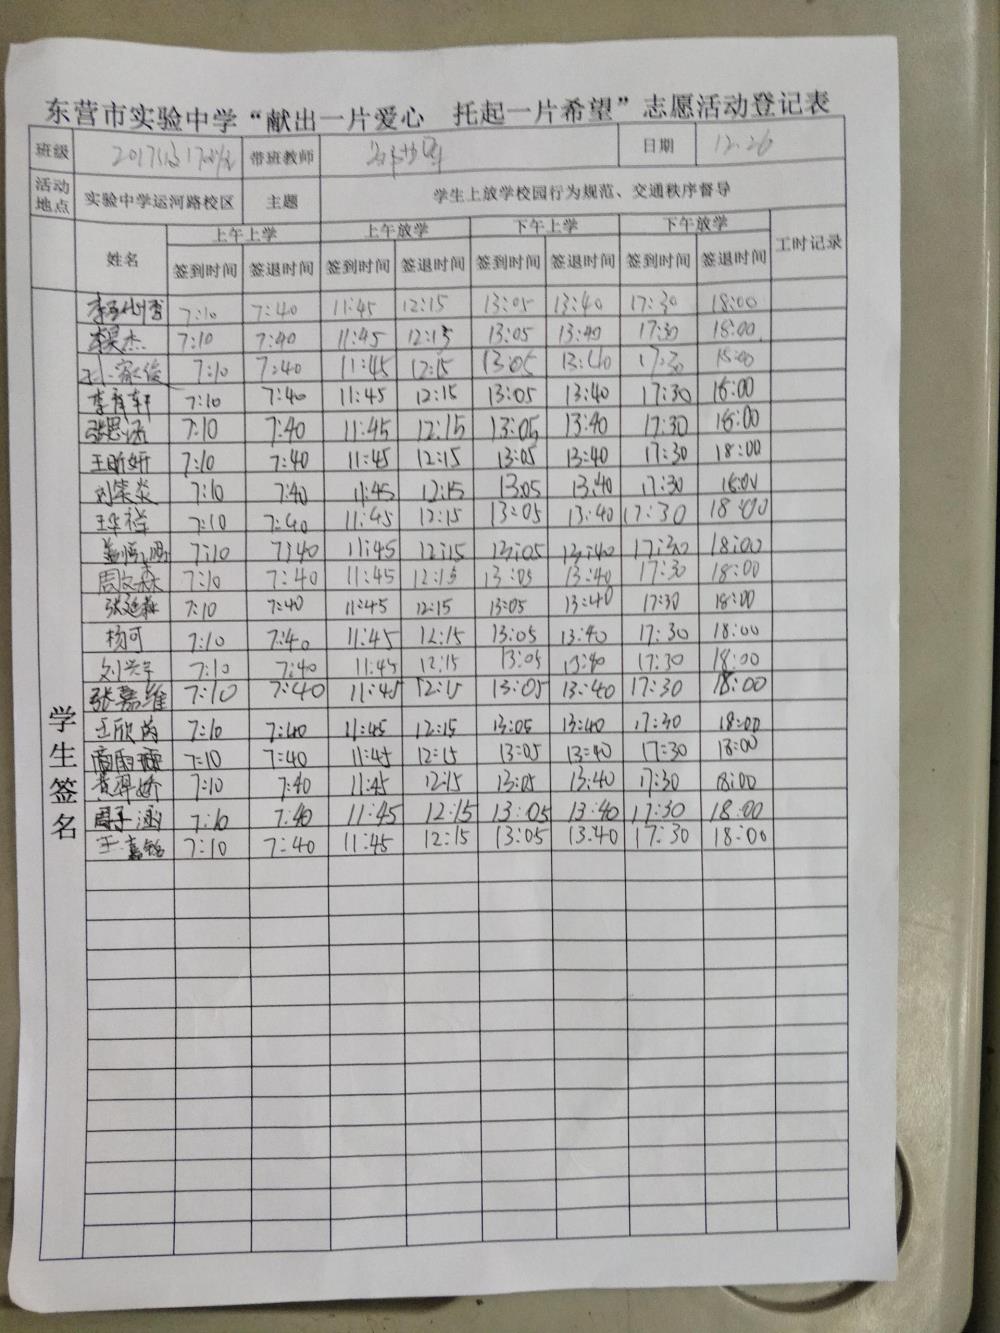 东营市实验中学“献出一片爱心 托起一片希望”志愿活动登记表
班级 2017级17班 带班教师 日期 12.26
活动地点 实验中学运河路校区 主题 学生上放学校园行为规范、交通秩序督导
姓名 上午上学 上午放学 下午上学 下午放学 工时记录
签到时间 签退时间 签到时间 签退时间 签到时间 签退时间 签到时间 签退时间
学生签名
7:10 7:40 11:45 12:15 13:05 13:40 17:30 18:00
李昊杰 7:10 7:40 11:45 12:15 13:05 13:40 17:30 18:00
孙家俊 7:10 7:40 11:45 12:15 13:05 13:40 17:30 18:00
李育轩 7:10 7:40 11:45 12:15 13:05 13:40 17:30 18:00
张思涵 7:10 7:40 11:45 12:15 13:05 13:40 17:30 18:00
王昕妍 7:10 7:40 11:45 12:15 13:05 13:40 17:30 18:00
刘荣炎 7:10 7:40 11:45 12:15 13:05 13:40 17:30 18:00
王华祥 7:10 7:40 11:45 12:15 13:05 13:40 17:30 18:00
7:10 7:40 11:45 12:15 13:05 13:40 17:30 18:00
周文森 7:10 7:40 11:45 12:15 13:05 13:40 17:30 18:00
张延 7:10 7:40 11:45 12:15 13:05 13:40 17:30 18:00
杨可 7:10 7:40 11:45 12:15 13:05 13:40 17:30 18:00
刘兴宇 7:10 7:40 11:45 12:15 13:05 13:40 17:30 18:00
张嘉维 7:10 7:40 11:45 12:15 13:05 13:40 17:30 18:00
王欣茵 7:10 7:40 11:45 12:15 13:05 13:40 17:30 18:00
商雨 7:10 7:40 11:45 12:15 13:05 13:40 17:30 18:00
黄羿娇 7:10 7:40 11:45 12:15 13:05 13:40 17:30 18:00
周子涵 7:10 7:40 11:45 12:15 13:05 13:40 17:30 18:00
王嘉铭 7:10 7:40 11:45 12:15 13:05 13:40 17:30 18:00